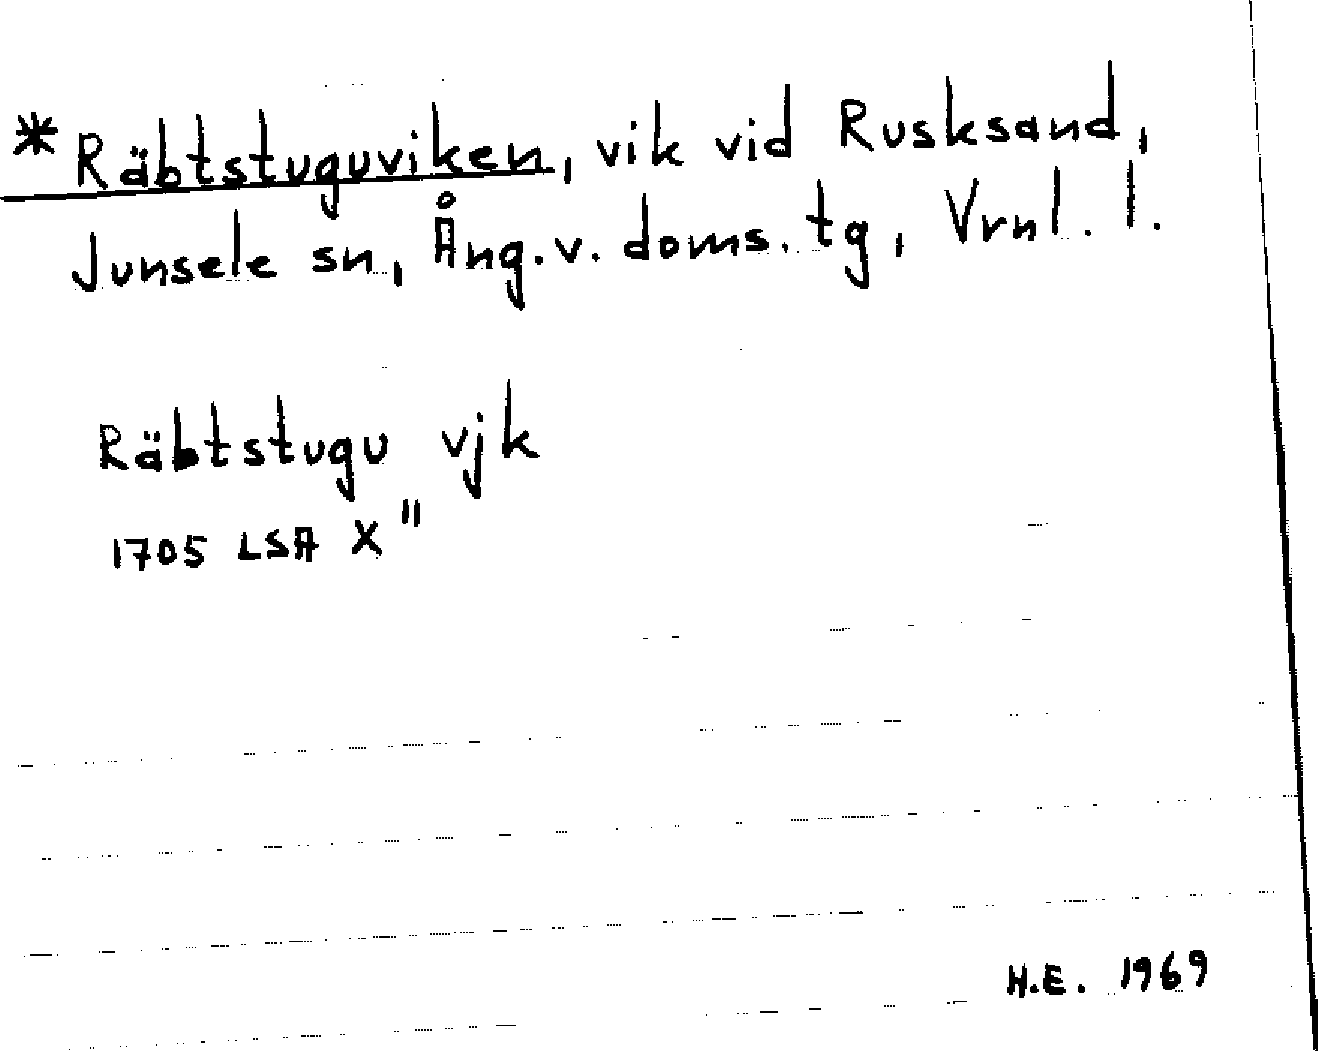 *Räbtstuguviken, vik vid Rusksand,
Junsele sn, Ång.v. doms.tg, Vrnl. l.
Räbtstugu vjk
1705 LSA X"
H.E. 1969